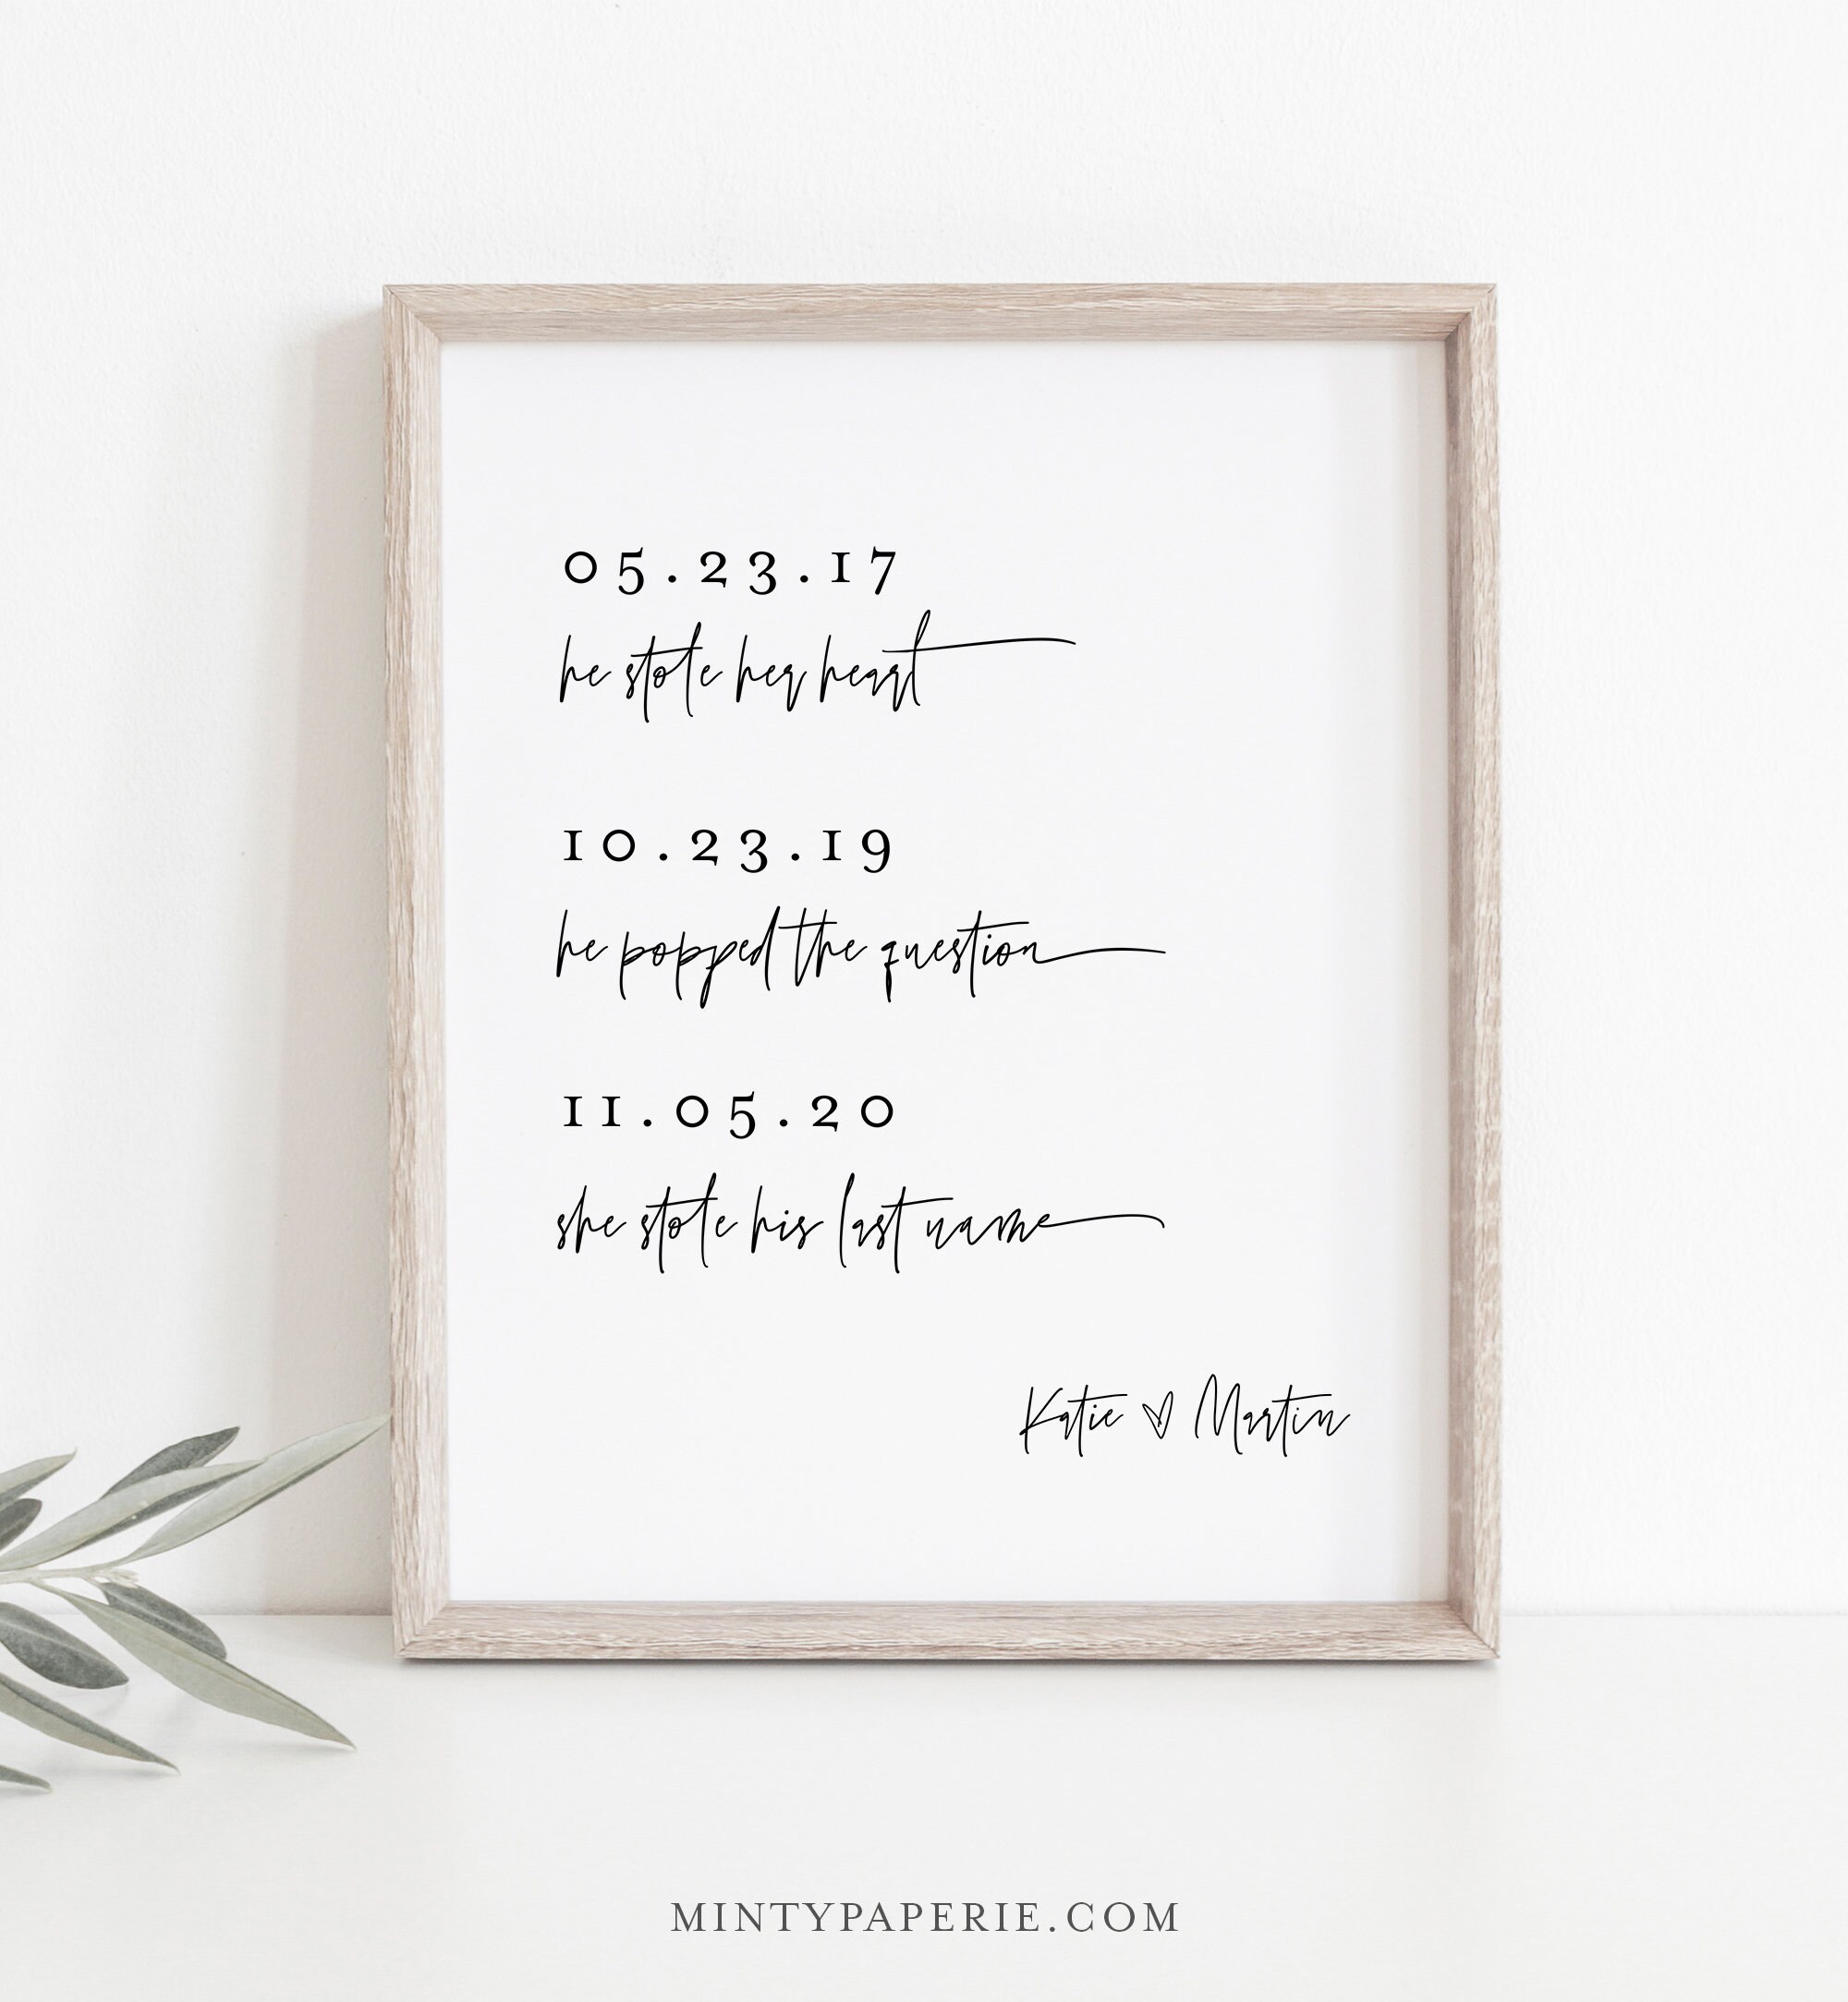 05.23.17
he stole her heart
10.23.19
he popped the question
11.05.20
she stole his last name
Katie ♡ Martin
MINTYPAPERIE.COM